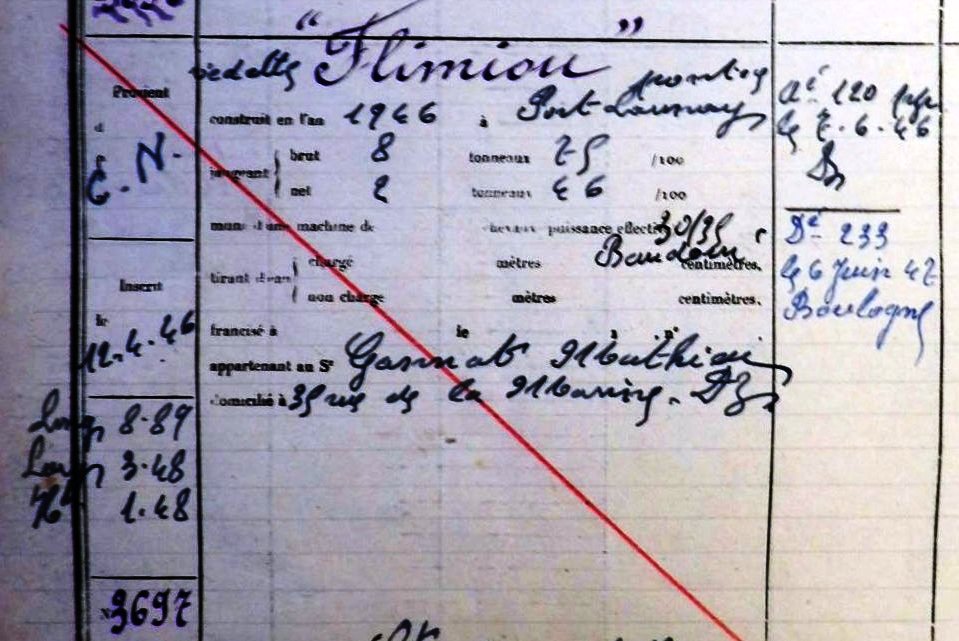 " Flimiou "
pontée
Provient
d
C. N.
construit en l'an 1946 à Port Launay
jaugeant
brut 8 tonneaux 75 /100
net 2 tonneaux 46 /100
muni d'une machine de chevaux puissance effective 30/35
Baudouin
tirant d'eau
chargé mètres centimètres.
non chargé mètres centimètres.
francisé à le à n°
appartenant au Sr Gannat Mathieu
domicilié à 35 rue de la Marine. DZ
Inscrit
le
12.4.46
Long 8.89
Larg 3.48
1.48
3697
Dé 120
le 7.6.46
Dz
Dé 233
le 6 Juin 47
Boulogne